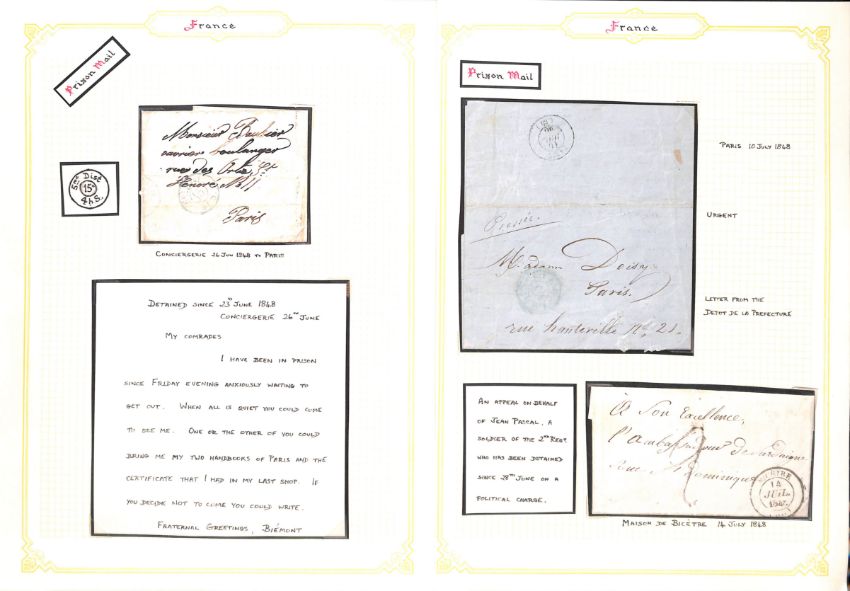 France
Prison Mail
Monsieur
ouvrier boulanger
rue des Arts, St
Honoré, No 11
Paris
5me Dist
15e
4h.S.
CONCIERGERIE 26 JUN 1848 to PARIS
DETAINED SINCE 23rd JUNE 1848
CONCIERGERIE 26TH JUNE
MY COMRADES
I HAVE BEEN IN PRISON
SINCE FRIDAY EVENING ANXIOUSLY WAITING TO
GET OUT. WHEN ALL IS QUIET YOU COULD COME
TO SEE ME. ONE OR THE OTHER OF YOU COULD
BRING ME MY TWO HANDBOOKS OF PARIS AND THE
CERTIFICATE THAT I HAD IN MY LAST SHOP. IF
YOU DECIDE NOT TO COME YOU COULD WRITE.
FRATERNAL GREETINGS, BIÉMONT
France
Prison Mail
PARIS 10 JULY 1848
Pressée.
URGENT
Madame Doisy
Paris.
rue hauteville No. 21.
LETTER FROM THE
DEPOT DE LA PREFECTURE
AN APPEAL ON BEHALF
OF JEAN PASCAL, A
SOLDIER OF THE 2ND REGT.
WHO HAS BEEN DETAINED
SINCE 28TH JUNE ON A
POLITICAL CHARGE.
à Son Excellence,
l'ambassadeur de
rue St Dominique
14
JUIL
MAISON DE BICÊTRE 14 JULY 1848